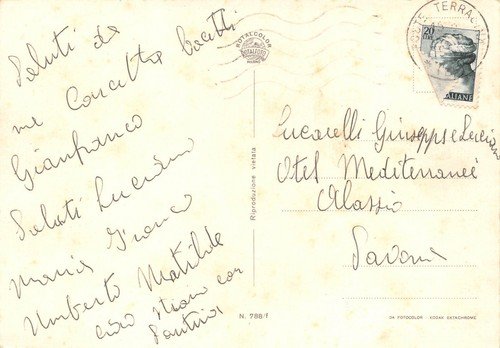 Saluti da
me Concetta Bacetti
Gianfranco
Saluti Luciano
Maria Franco
Umberto Matilde
ciao
Santina
ROTALCOLOR
ROTALFOTO
MILANO
Riproduzione vietata
N. 788/f
TERRAC
20
LIRE
ALIANE
Lucarelli Giuseppe Lucian
Otel Mediterraneè
Alassio
Savona
DA FOTOCOLOR KODAK EKTACHROME